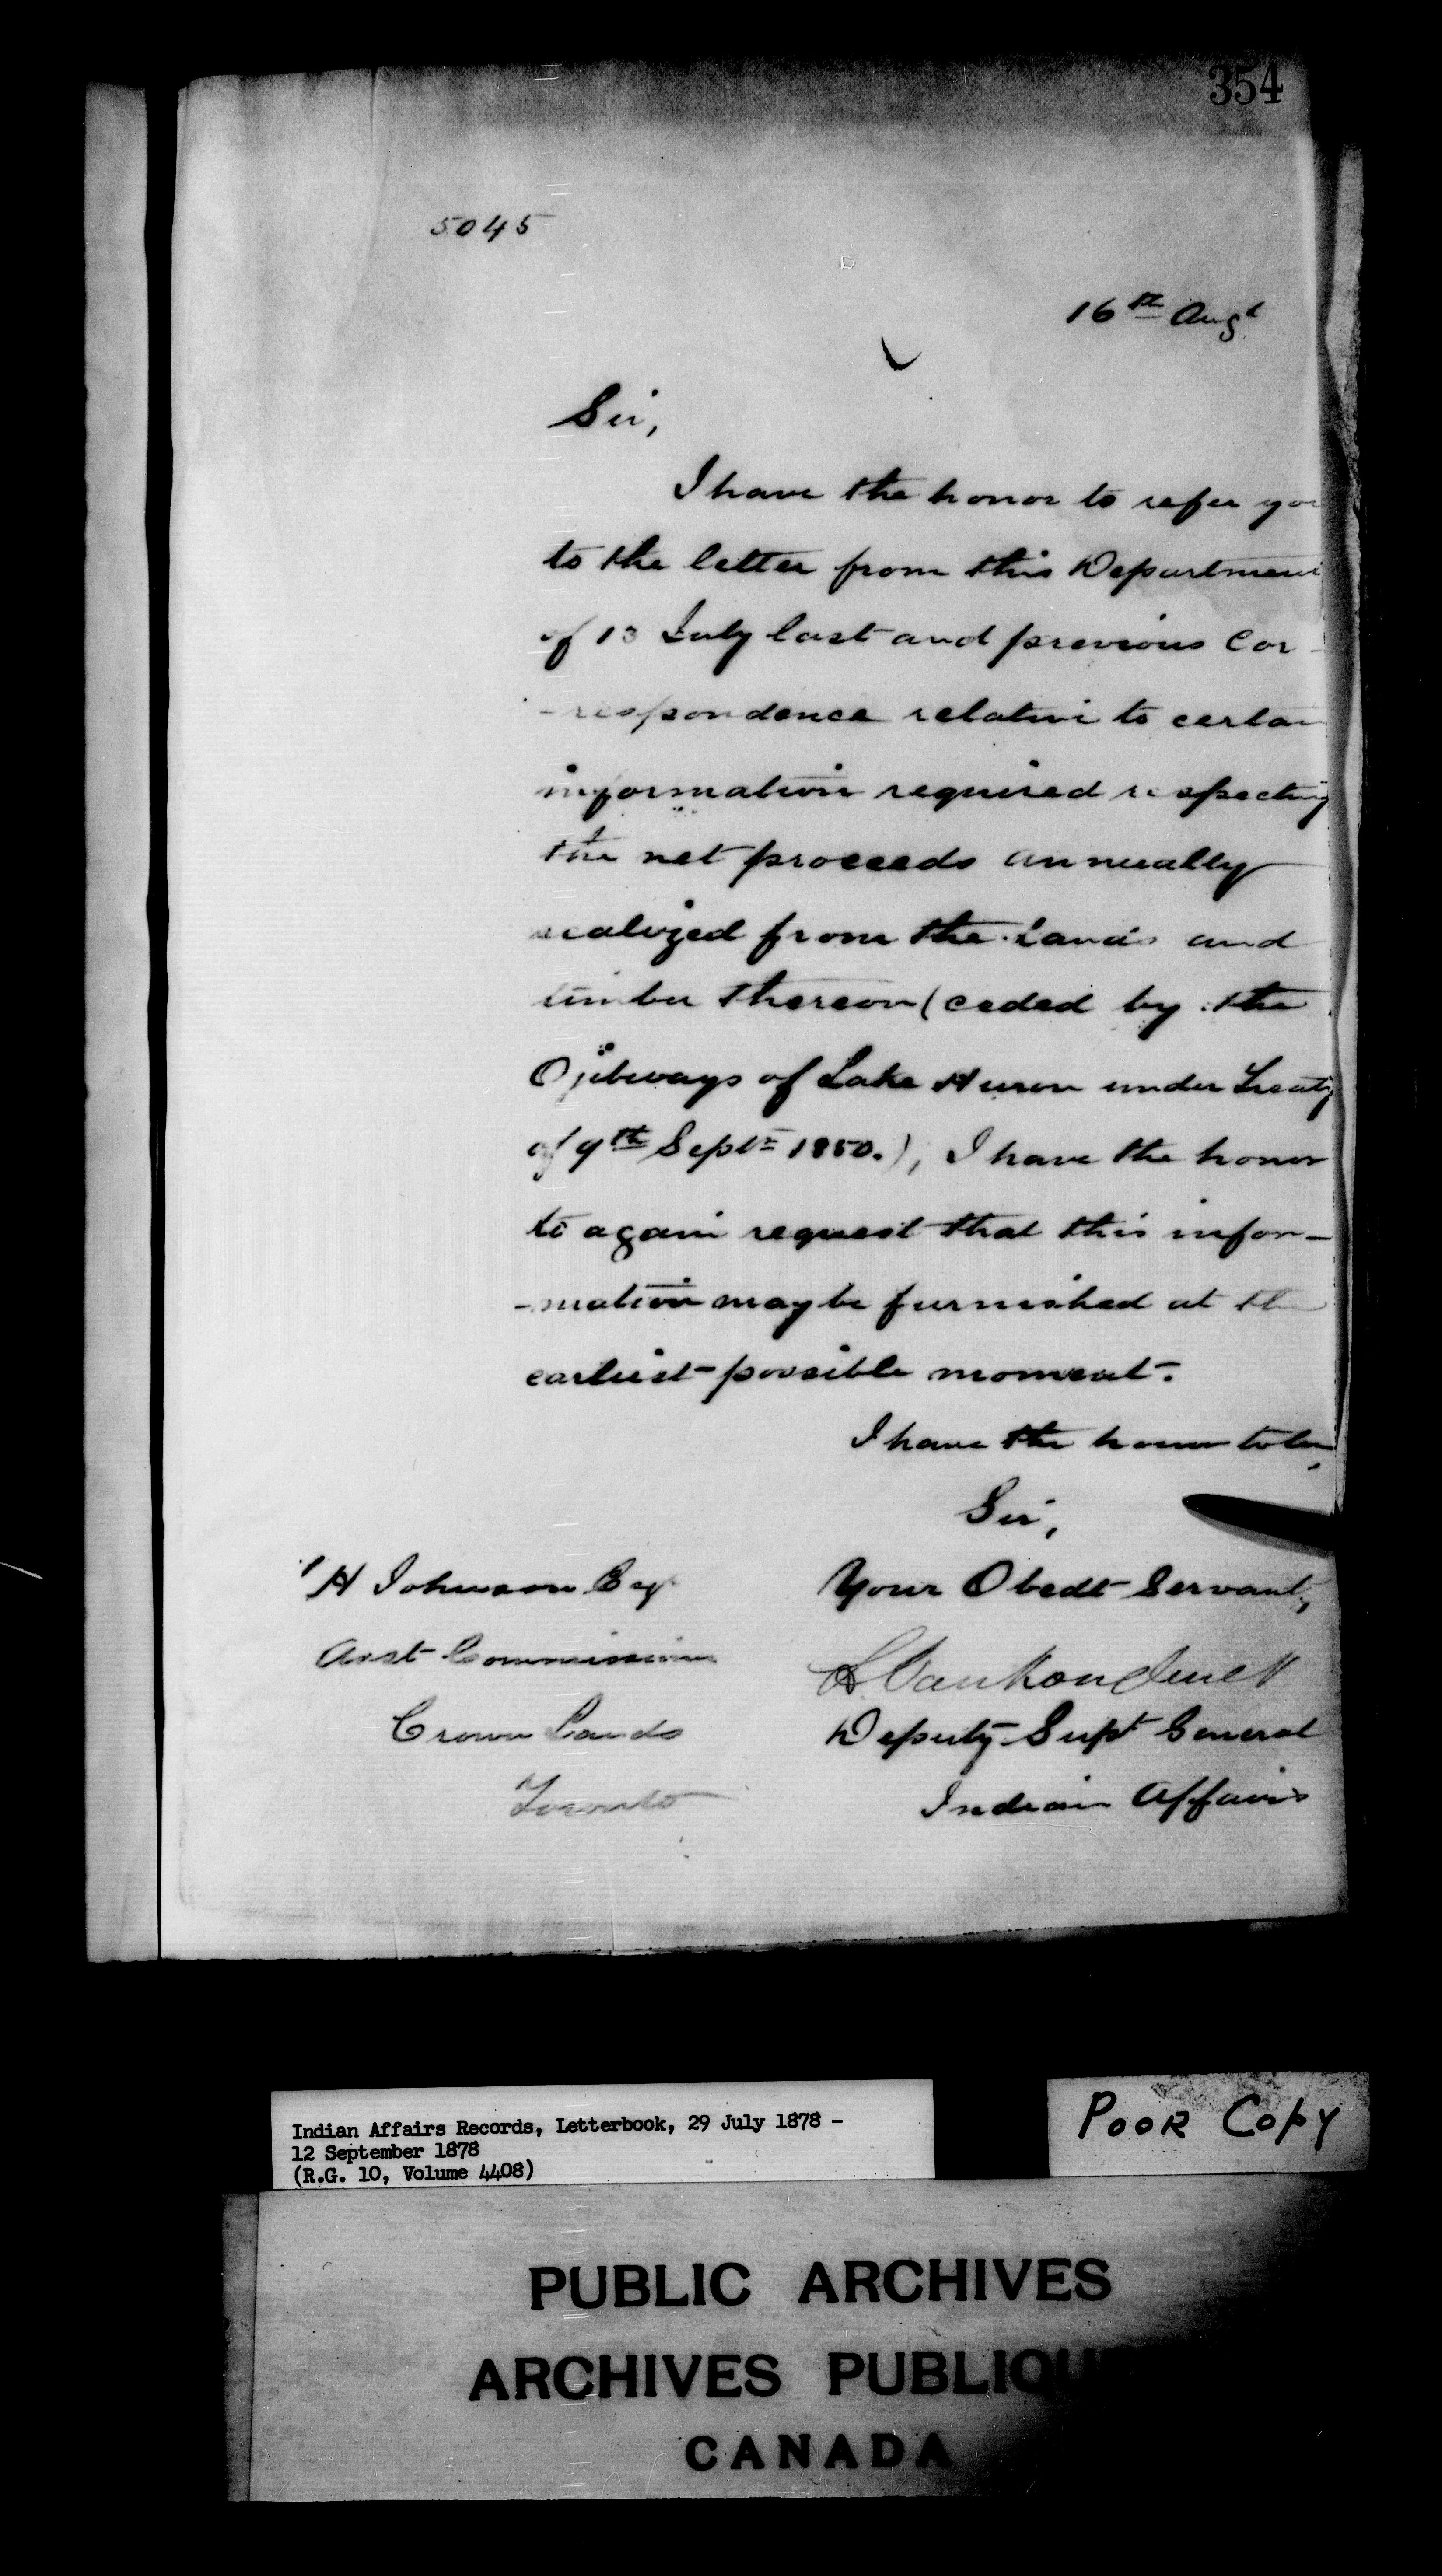 354
5045
16th Augt
Sir,
I have the honor to refer you
to the letter from this Department
of 13 July last and previous Cor-
-respondence relative to certain
information required respecting
the net proceeds annually
realized from the Lands and
timber thereon (ceded by the
Ojibways of Lake Huron under Treaty
of 9th Septr 1850.), I have the honor
to again request that this infor-
-mation may be furnished at the
earliest possible moment.
I have the honor to be,
Sir,
Your Obedt Servant,
L Vankoughnet
Deputy Supt General
Indian Affairs
H Johnson Esq
Asst Commissioner
Crown Lands
Toronto
Indian Affairs Records, Letterbook, 29 July 1878 -
12 September 1878
(R.G. 10, Volume 4408)
POOR COPY
PUBLIC ARCHIVES
ARCHIVES PUBLIQU
CANADA